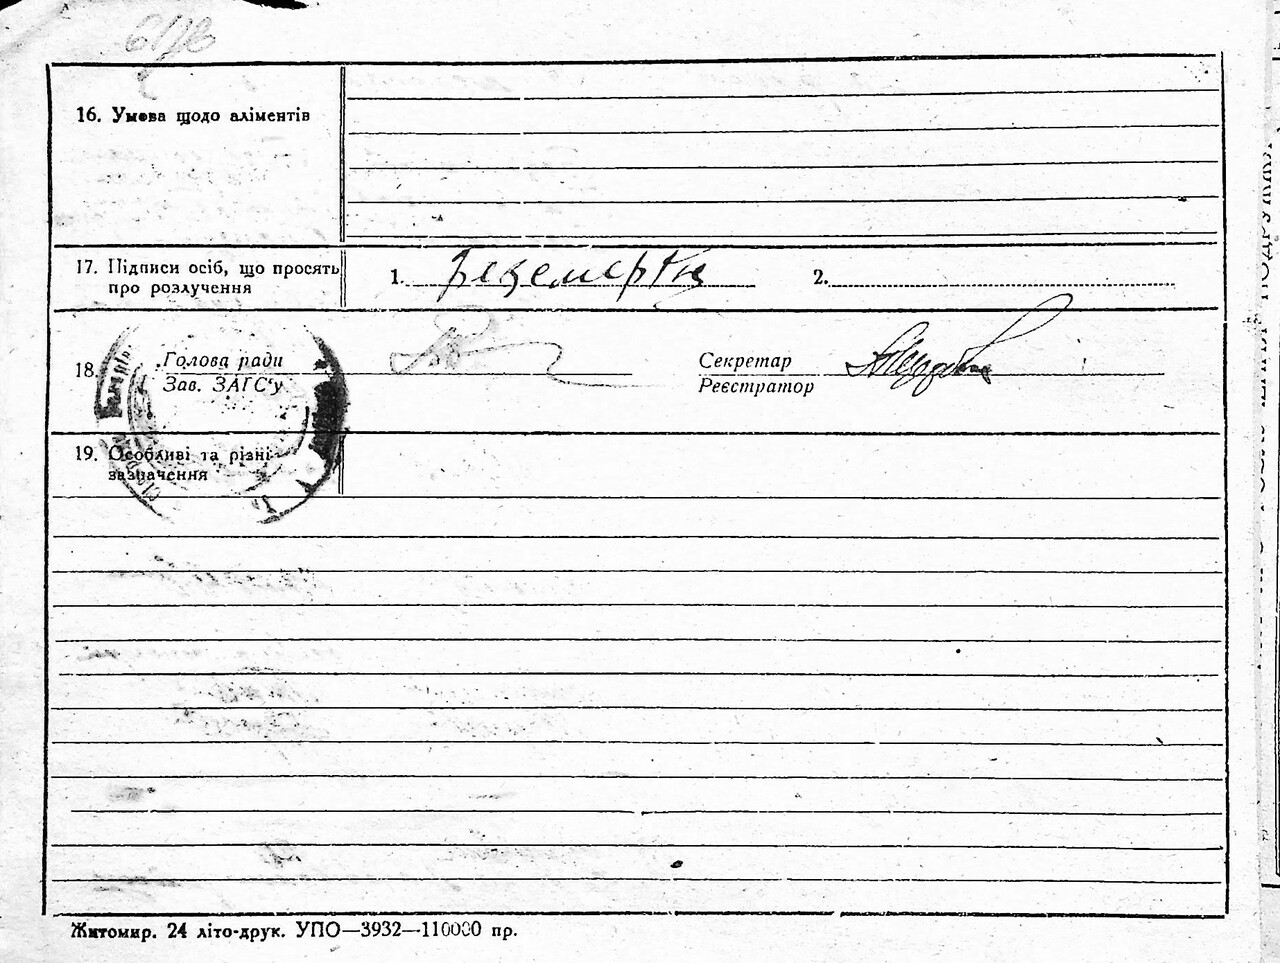 16. Умова щодо аліментів
17. Підписи осіб, що просять
про розлучення
1.
2.
18.
Голова ради
Зав. ЗАГС'у
Секретар
Реєстратор
19. Особливі та різні
зазначення
Житомир. 24 літо-друк. УПО—3932—110000 пр.